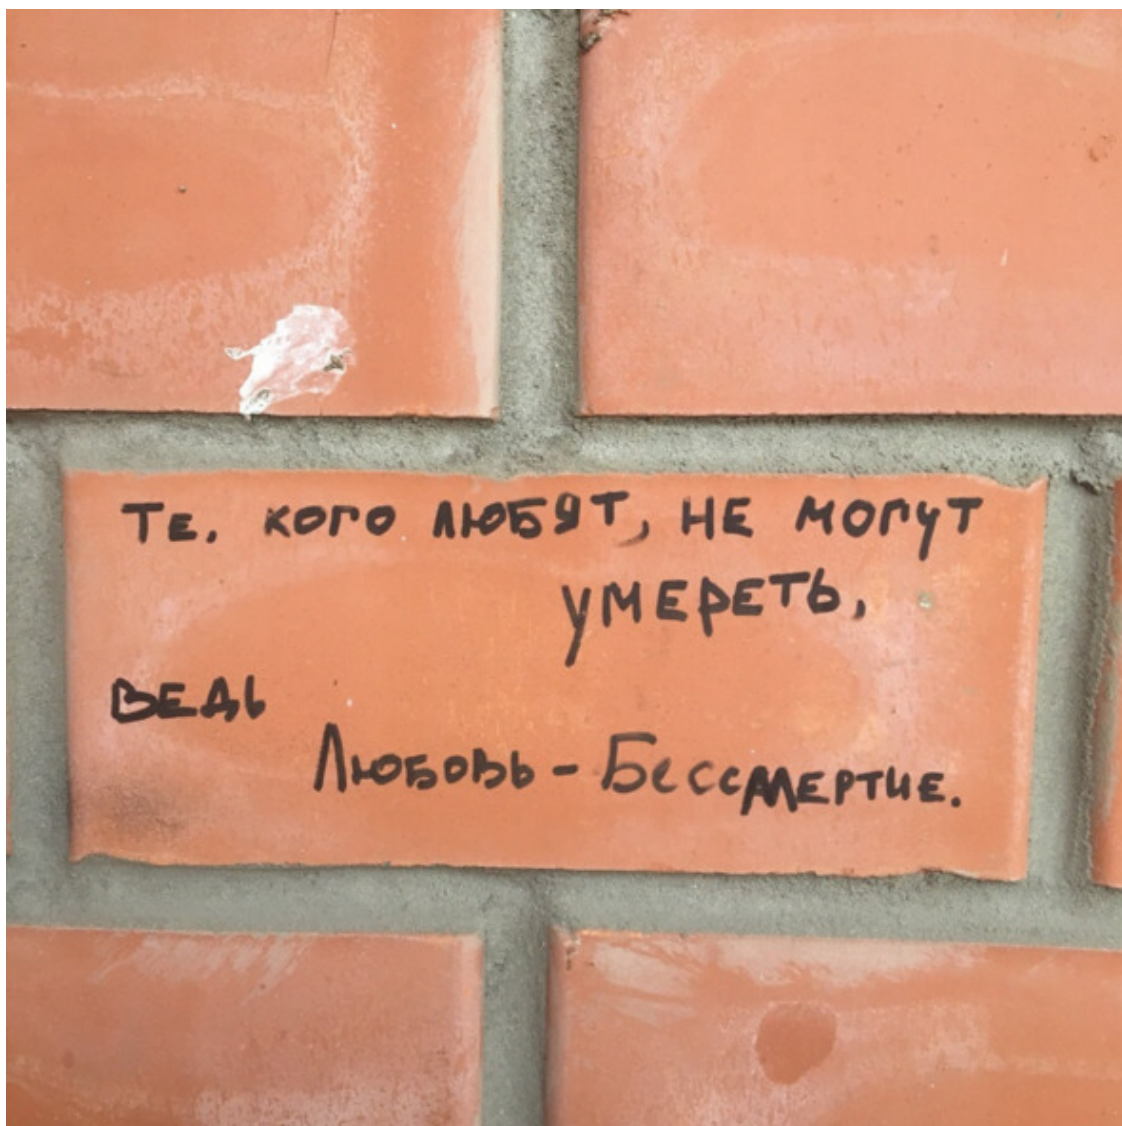 Те. кого любят, не могут
умереть,
ведь
Любовь - Бессмертие.